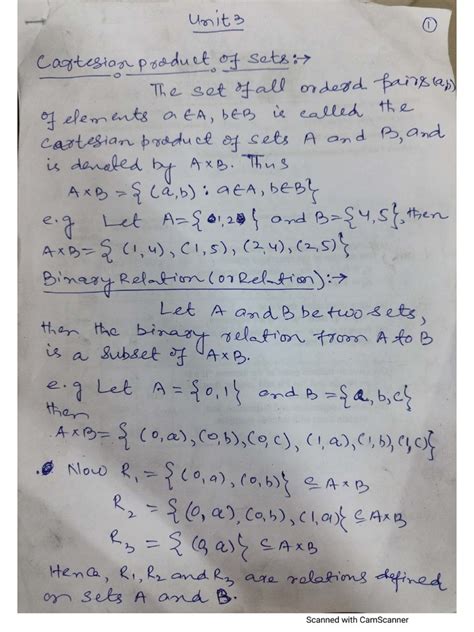 Unit 3
①
Cartesian product of sets:→
The set of all orderd pairs (a,b)
of elements a∈A, b∈B is called the
cartesian product of sets A and B, and
is denoted by A×B. Thus
A×B = {(a,b) : a∈A, b∈B}
e.g Let A={1,2} and B={4,5}, then
A×B= {(1,4), (1,5), (2,4), (2,5)}
Binary Relation (or Relation):→
Let A and B be two sets,
then the binary relation from A to B
is a subset of A×B.
e.g Let A = {0,1} and B = {a,b,c}
then
A×B= {(0,a), (0,b), (0,c), (1,a), (1,b), (1,c)}
Now R₁ = {(0,a), (0,b)} ⊆ A×B
R₂ = {(0,a), (0,b), (1,a)} ⊆ A×B
R₃ = {(0,a)} ⊆ A×B
Hence, R₁, R₂ and R₃ are relations defined
on sets A and B.
Scanned with CamScanner